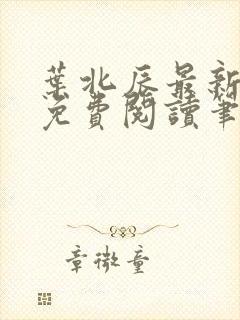 葉北辰最新
免費閱讀筆
章微童